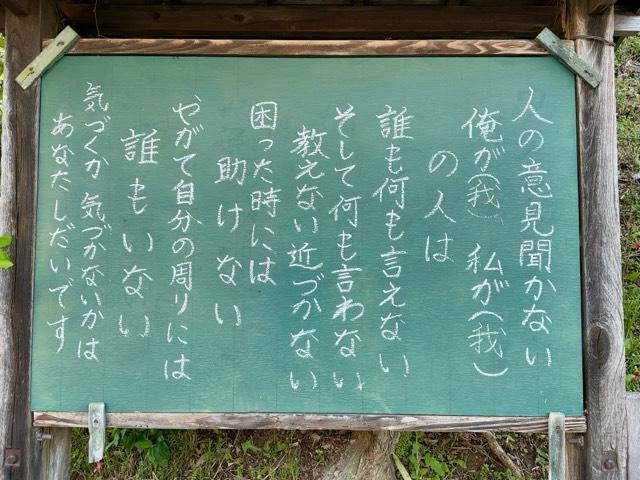 人の意見聞かない
俺が(我) 私が(我)
の人は
誰も何も言えない
そして何も言わない
教えない近づかない
困った時には
助けない
やがて自分の周りには
誰もいない
気づくか 気づかないかは
あなたしだいです